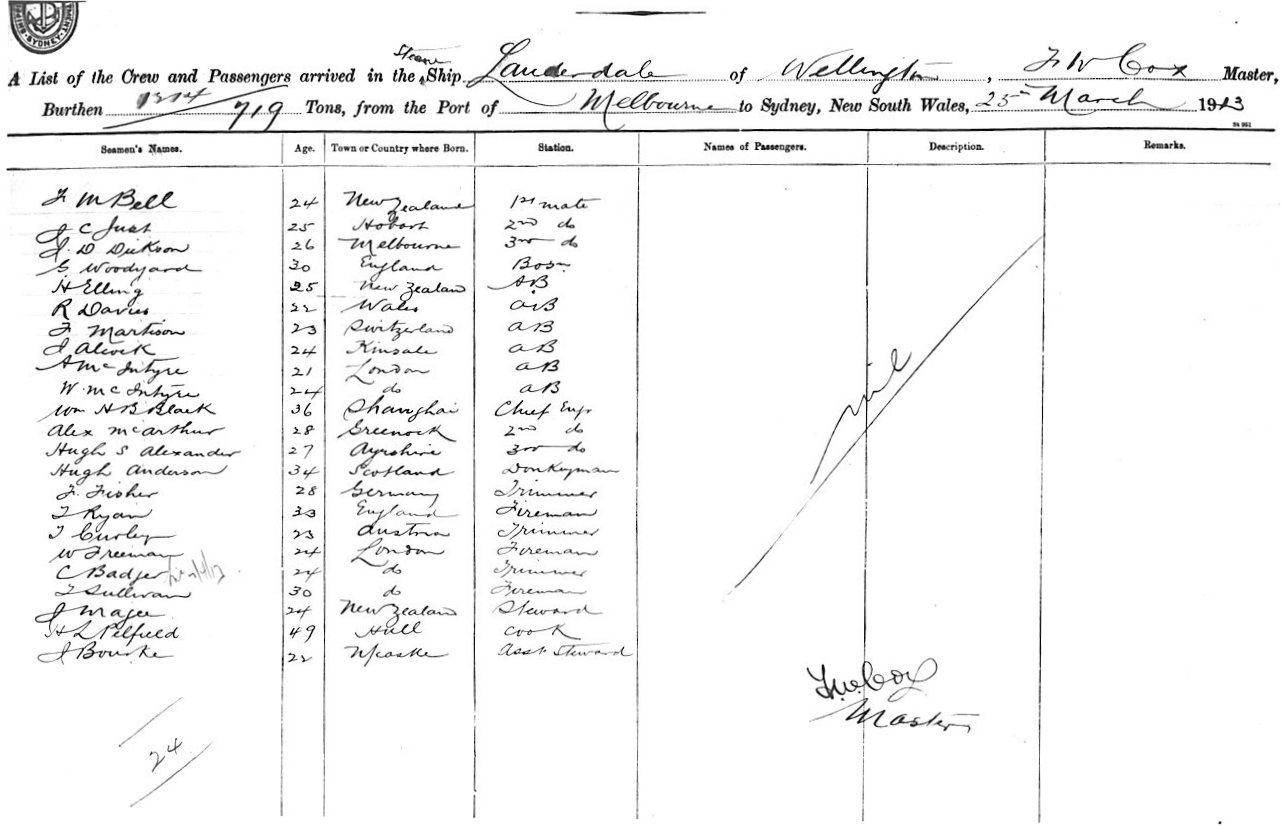 SHIPPING · SYDNEY
A List of the Crew and Passengers arrived in the Steam Ship Lauderdale of Wellington, F W Cox Master,
Burthen 1374/719 Tons, from the Port of Melbourne to Sydney, New South Wales, 25th March 1913
Seamen's Names. Age. Town or Country where Born. Station. Names of Passengers. Description. Remarks.
F M Bell 24 New Zealand 1st mate
J C Just 25 Hobart 2nd do
J. D Dickson 26 Melbourne 3rd do
G Woodyard 30 England Bosn
H Elling 25 New Zealan AB
R Davies 22 Wales AB
F Martison 23 Switzerland AB
J Alcock 24 Kinsale AB
A McIntyre 21 London AB
W. McIntyre 24 do AB
Wm H B Black 36 Shanghai Chief Engr
Alex McArthur 28 Greenock 2nd do
Hugh S Alexander 27 Ayrshire 3rd do
Hugh Anderson 34 Scotland Donkeyman
F. Fisher 28 Germany Trimmer
T Ryan 33 England Fireman
T Curley 23 Austria Trimmer
W Freeman 24 London Fireman
C Badger 24 do Trimmer
T Sullivan 30 do Fireman
J Magee 24 New Zealand Steward
H L Pelfield 49 Hull Cook
J Bourke 22 Asst Steward
nil
F.W. Cox
Master
24